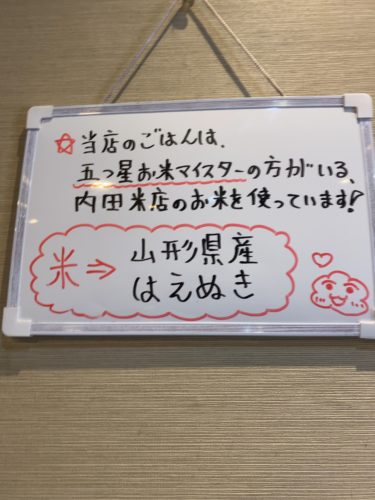 ☆当店のごはんは、
五つ星お米マイスターの方がいる、
内田米店のお米を使っています!
米⇒山形県産
はえぬき